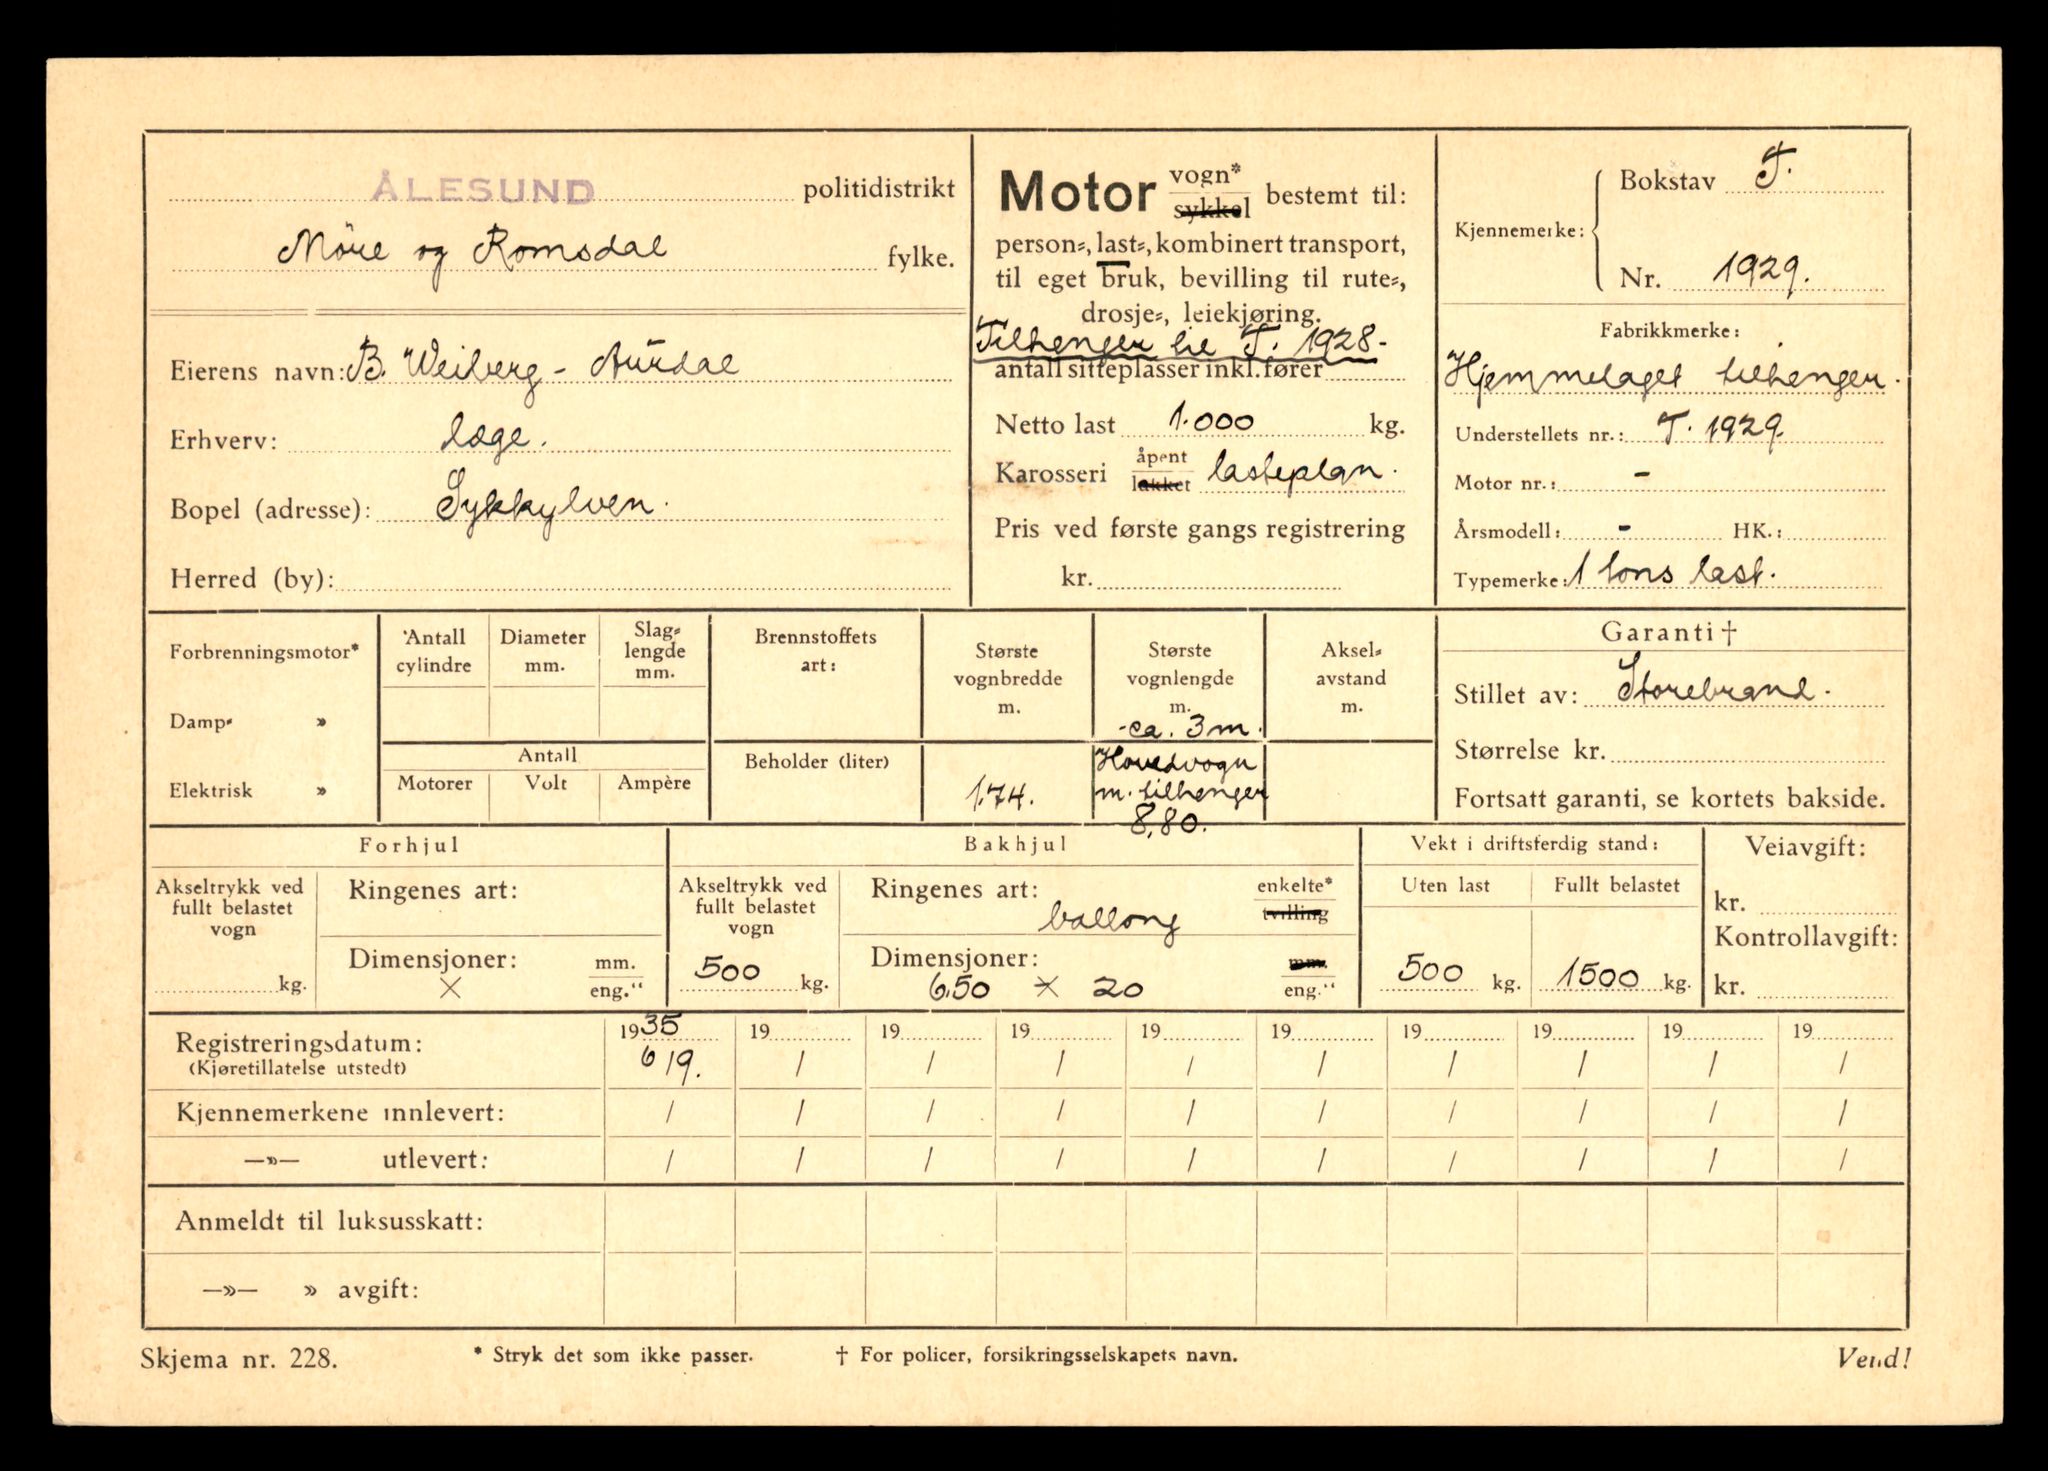 ÅLESUND politidistrikt
Möre og Romsdal fylke.
Eierens navn: B. Weiberg - Aurdal
Erhverv: læge.
Bopel (adresse): Sykkylven.
Herred (by):
Motor vogn* sykkel bestemt til:
person=, last=, kombinert transport,
til eget bruk, bevilling til rute=,
drosje=, leiekjøring.
Tilhenger til T. 1928.
antall sitteplasser inkl. fører
Netto last 1.000 kg.
Karosseri åpent lukket lasteplan.
Pris ved første gangs registrering
kr.
Kjennemerke: Bokstav T.
Nr. 1929.
Fabrikkmerke:
Hjemmelaget tilhenger.
Understellets nr.: T. 1929.
Motor nr.: -
Årsmodell: - HK.:
Typemerke: 1 tons last.
Forbrenningsmotor*
Damp= »
Elektrisk »
Antall cylindre
Diameter mm.
Slag= lengde mm.
Antall
Motorer Volt Ampère
Brennstoffets art:
Beholder (liter)
Største vognbredde m.
1.74.
Største vognlengde m.
ca. 3 m.
Hovedvogn
m. tilhenger
8,80.
Aksel= avstand m.
Garanti †
Stillet av: Storebrand.
Størrelse kr.
Fortsatt garanti, se kortets bakside.
Forhjul
Akseltrykk ved fullt belastet vogn
kg.
Ringenes art:
Dimensjoner: mm.
× eng."
Bakhjul
Akseltrykk ved fullt belastet vogn
500 kg.
Ringenes art: enkelte*
ballong tvilling
Dimensjoner: mm.
6.50 × 20 eng."
Vekt i driftsferdig stand:
Uten last Fullt belastet
500 kg. 1500 kg.
Veiavgift:
kr.
Kontrollavgift:
kr.
Registreringsdatum: 1935 19 19 19 19 19 19 19 19 19
(Kjøretillatelse utstedt) 6/9. / / / / / / / / /
Kjennemerkene innlevert: / / / / / / / / / /
—»— utlevert: / / / / / / / / / /
Anmeldt til luksusskatt:
—»— » avgift:
Skjema nr. 228. * Stryk det som ikke passer. † For policer, forsikringsselskapets navn. Vend!